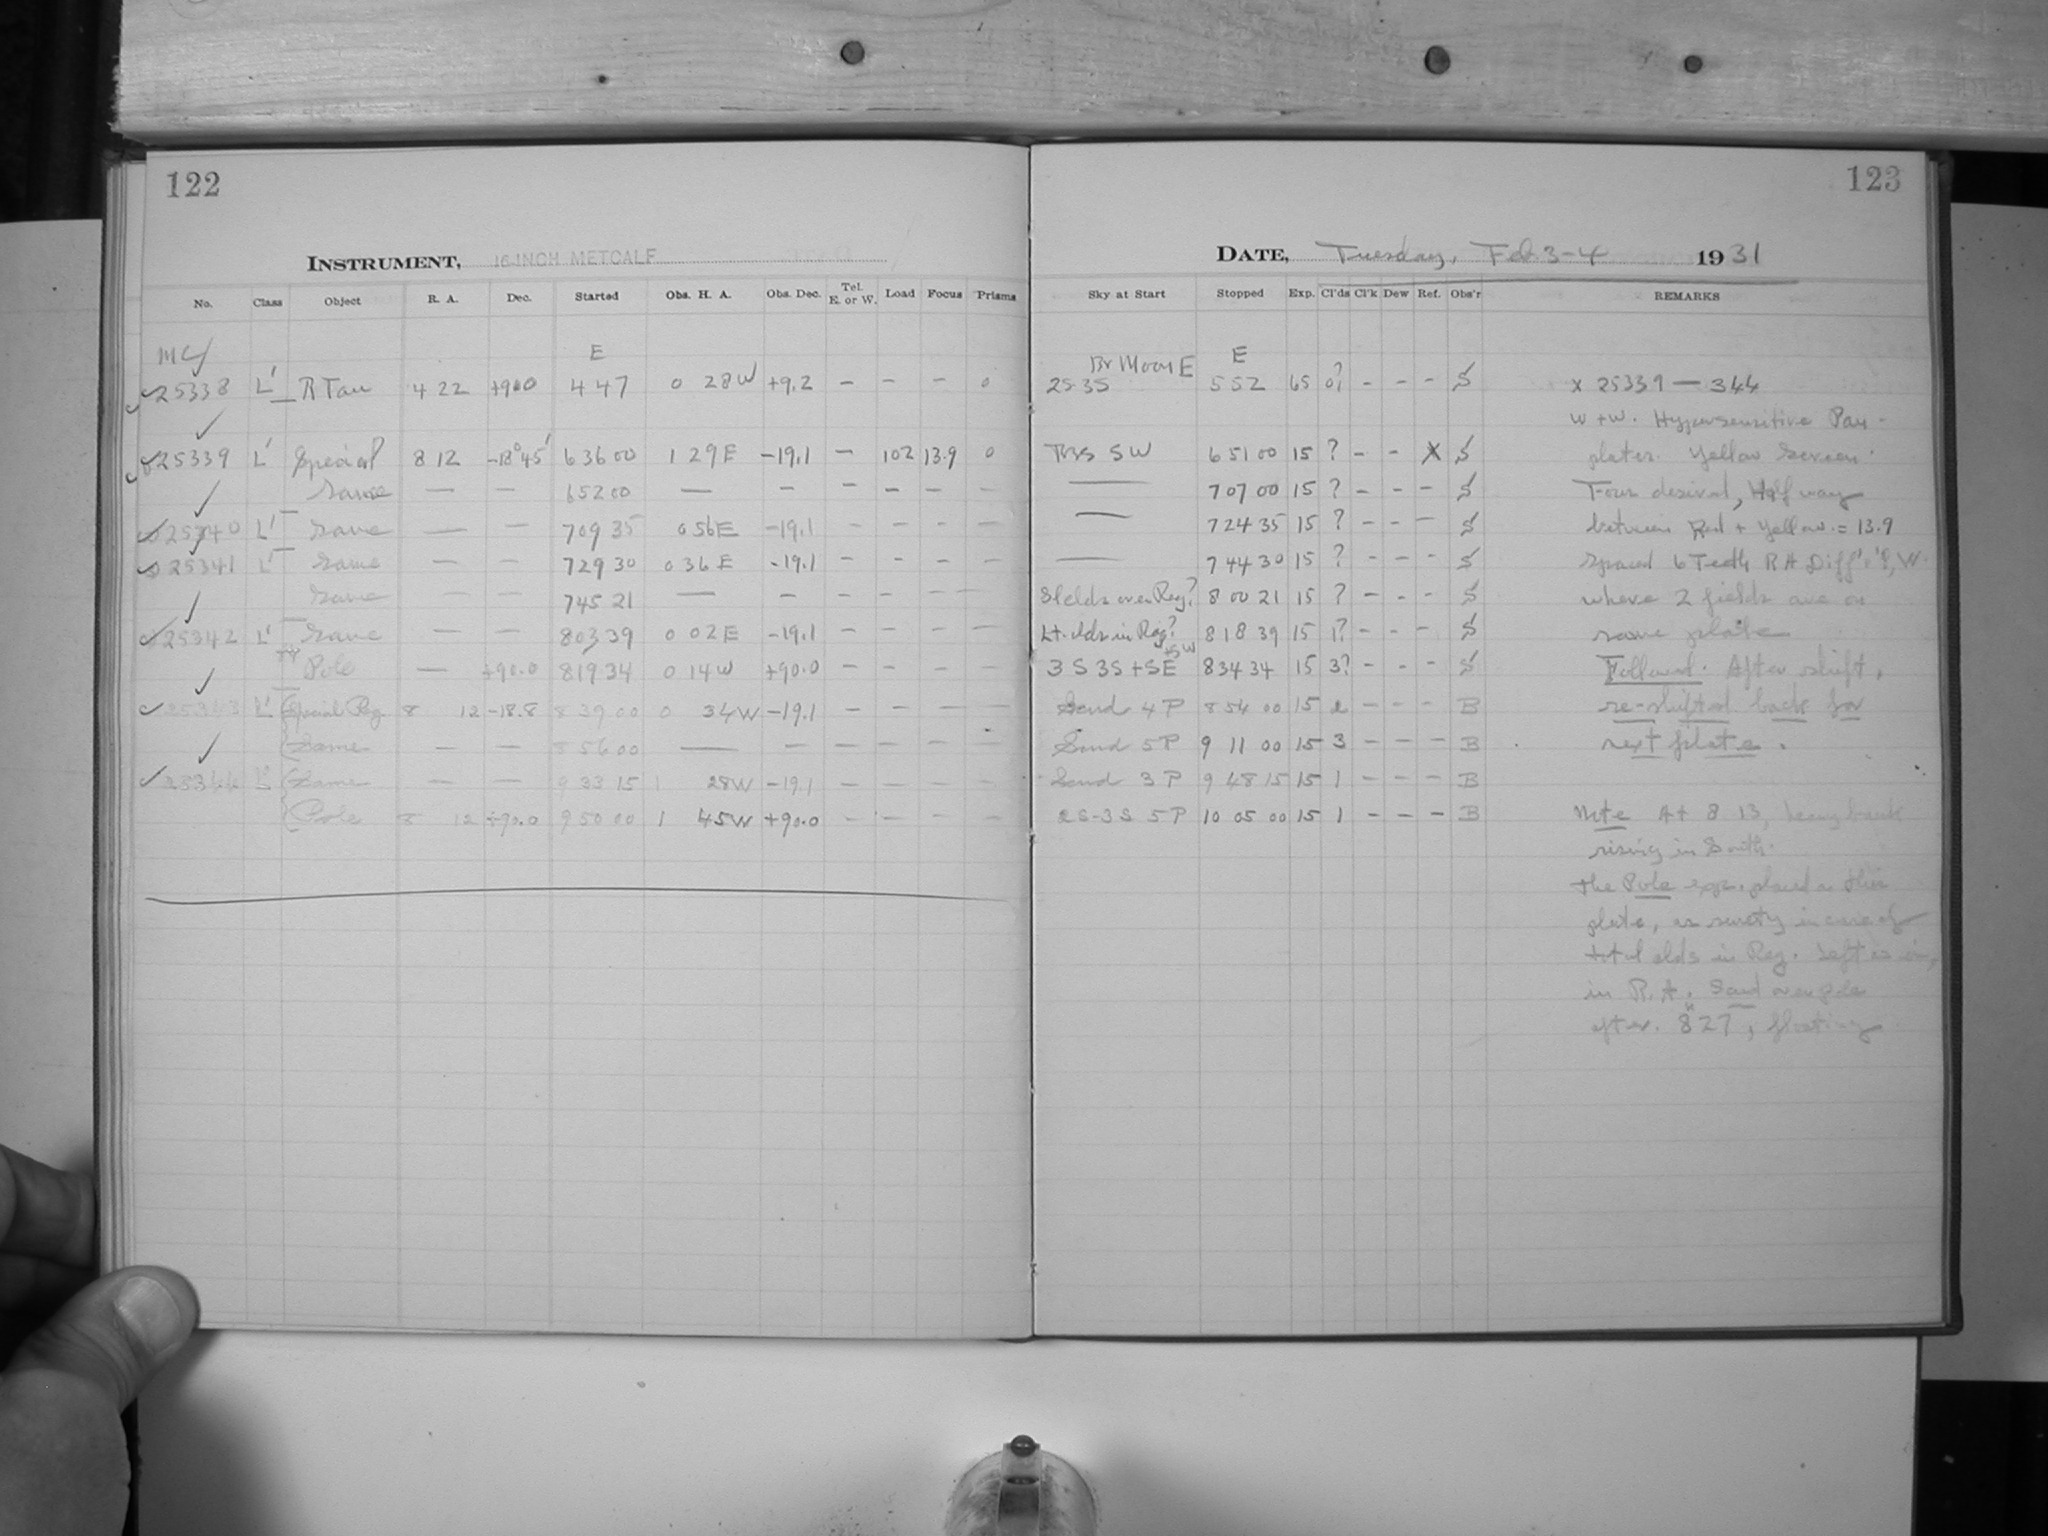 122
INSTRUMENT, 16-INCH METCALF
No. Class Object R. A. Dec. Started Obs. H. A. Obs. Dec. Tel. E. or W. Load Focus Prisms
MC E
25338 L' R Tau 4 22 +9.0 4 47 0 28W +9.2 – – – 0
25339 L' Special 8 12 -18°45' 6 36 00 1 29 E -19.1 – 102 13.9 0
Same — — 6 52 00 — – – – – –
25340 L' Same — — 7 09 35 0 56 E -19.1 – – – –
25341 L' Same — — 7 29 30 0 36 E -19.1 – – – –
Same — — 7 45 21 — – – – – –
25342 L' Same — — 8 03 39 0 02 E -19.1 – – – –
Pole — +90.0 8 19 34 0 14 W +90.0 – – – –
25343 L' Special Reg 8 12 -18.8 8 39 00 0 34 W -19.1 – – – –
Same — — 8 56 00 — – – – – –
25344 L' Same — — 9 33 15 1 28W -19.1 – – – –
Pole 8 12 +90.0 9 50 00 1 45W +90.0 – – – –
123
DATE, Tuesday, Feb 3-4 1931
Sky at Start Stopped Exp. Cl'ds Cl'k Dew Ref. Obs'r REMARKS
Br Moon E E
2S-3S 5 52 65 0? – – – S x 25339 — 344
W + W. Hypersensitive Pan-
SW 6 51 00 15 ? – – X S plates. Yellow Screen.
— 7 07 00 15 ? – – – S Four desired, Half way
— 7 24 35 15 ? – – – S between Red + Yellow = 13.9
— 7 44 30 15 ? – – – S Spaced 6 Teeth RA Diff' W.
Slclds over Reg? 8 00 21 15 ? – – – S where 2 fields are on
Lt. clds in Reg? 8 18 39 15 1? – – – S same plate.
+SW
3 S 3S + SE 8 34 34 15 3? – – – S Followed. After shift,
Scud 4 P 8 54 00 15 2 – – – B re-shifted back for
Scud 5P 9 11 00 15 3 – – – B next plate.
Scud 3 P 9 48 15 15 1 – – – B
2S-3S 5P 10 05 00 15 1 – – – B Note At 8 13, heavy bank
rising in South.
the Pole exp. placed on this
plate, as surety in case of
total clds in Reg. Left as is,
in R.A. Scud over pole
after 8 27, floating